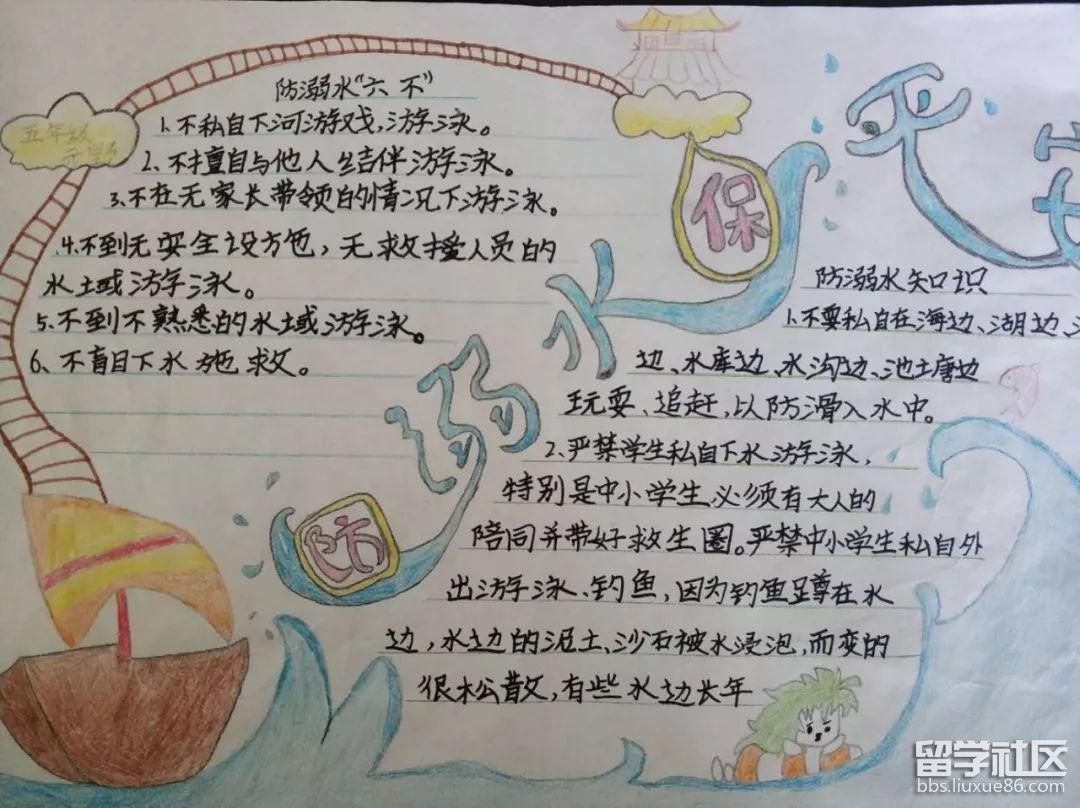 防溺水保平安
五年级
防溺水“六不”
1.不私自下河游戏,游泳。
2.不擅自与他人结伴游泳。
3.不在无家长带领的情况下游泳。
4.不到无安全设施,无救援人员的
水域游泳。
5.不到不熟悉的水域游泳。
6.不盲目下水施救。
防溺水知识
1.不要私自在海边、湖边、
边、水库边、水沟边、池塘边
玩耍、追赶,以防滑入水中。
2.严禁学生私自下水游泳,
特别是中小学生必须有大人的
陪同并带好救生圈。严禁中小学生私自外
出游泳、钓鱼,因为钓鱼蹲在水
边,水边的泥土、沙石被水浸泡,而变的
很松散,有些水边长年
留学社区
bbs.liuxue86.com